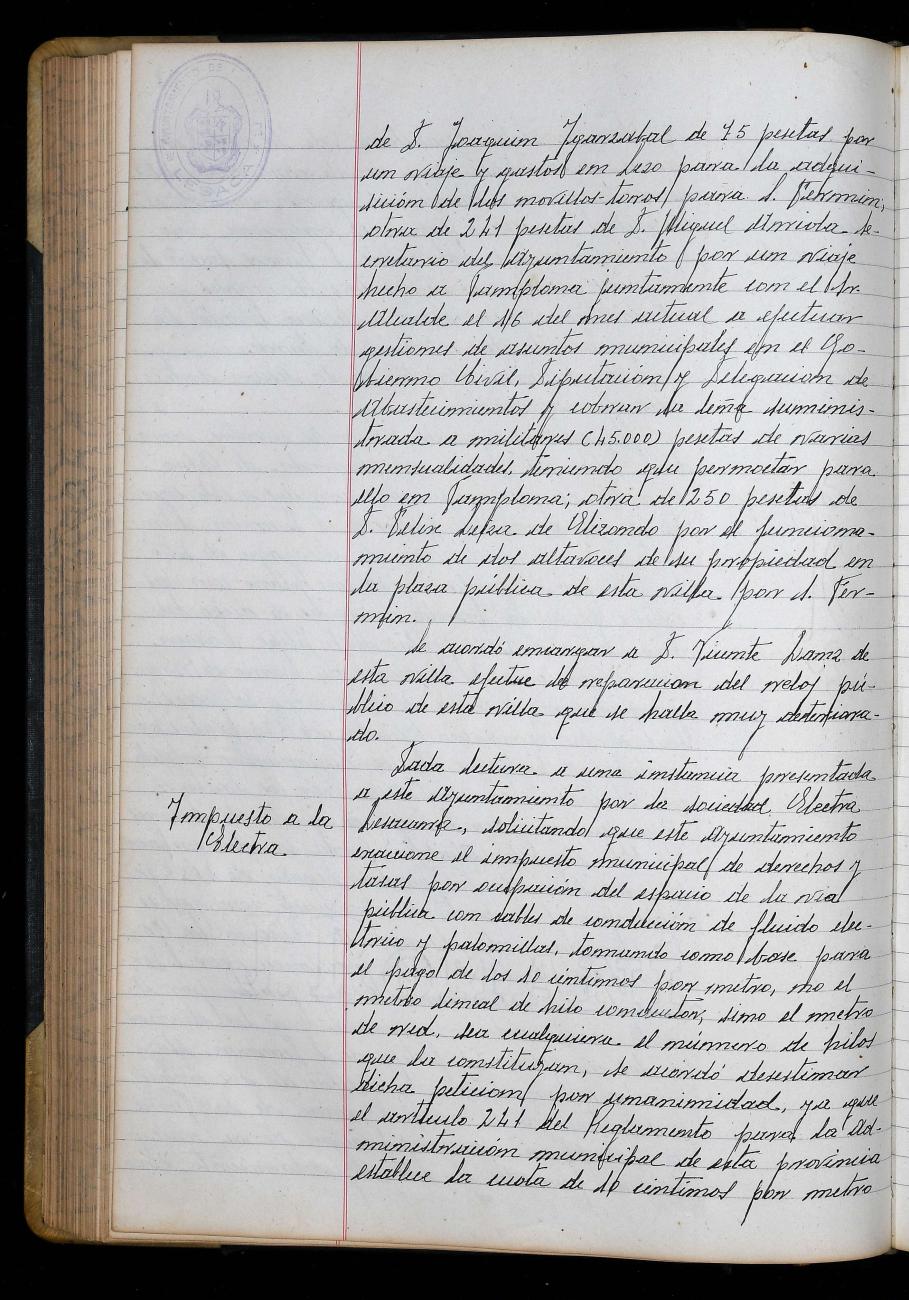 LESACA
de D. Joaquin Igarzabal de 75 pesetas por
un viaje y gastos en                para la adqui-
sición de los novillos-toros para S. Fermin;
otra de 241 pesetas de D. Miguel Arriola Se-
cretario del Ayuntamiento por un viaje
hecho a Pamplona juntamente con el Sr.
Alcalde el 16 del mes actual a efectuar
gestiones de asuntos municipales en el Go-
bierno Civil, Diputacion y Delegacion de
Abastecimientos y cobrar la leña suminis-
trada a militares (45.000) pesetas de varias
mensualidades, teniendo que pernoctar para
ello en Pamplona; otra de 250 pesetas de
D. Felix         de Elizondo por el funciona-
miento de dos altavoces de su propiedad en
la plaza pública de esta villa por S. Fer-
min.
Se acordó encargar a D. Vicente Danz de
esta villa efectue la reparacion del reloj pú-
blico de esta villa que se halla muy deteriora-
do.
Impuesto a la
Electra
Dada lectura a una instancia presentada
a este Ayuntamiento por la sociedad Electra
Lesacana, solicitando que este Ayuntamiento
exaccione el impuesto municipal de derechos y
tasas por ocupación del espacio de la via
pública con cables de conducción de fluido elec-
trico y palomillas, tomando como base para
el pago de los 10 céntimos por metro, no el
metro lineal de hilo conductor, sino el metro
de red, sea cualquiera el número de hilos
que la constituyan, se acordó desestimar
dicha peticion por unanimidad, ya que
el artículo 241 del Reglamento para la Ad-
ministración municipal de esta provincia
establece la cuota de 10 céntimos por metro